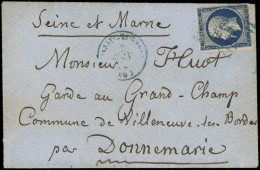 Seine et Marne
JUIN
60
Monsieur Fluot
Garde au Grand-Champ
Commune de Villeneuve les Bordes
par Donnemarie